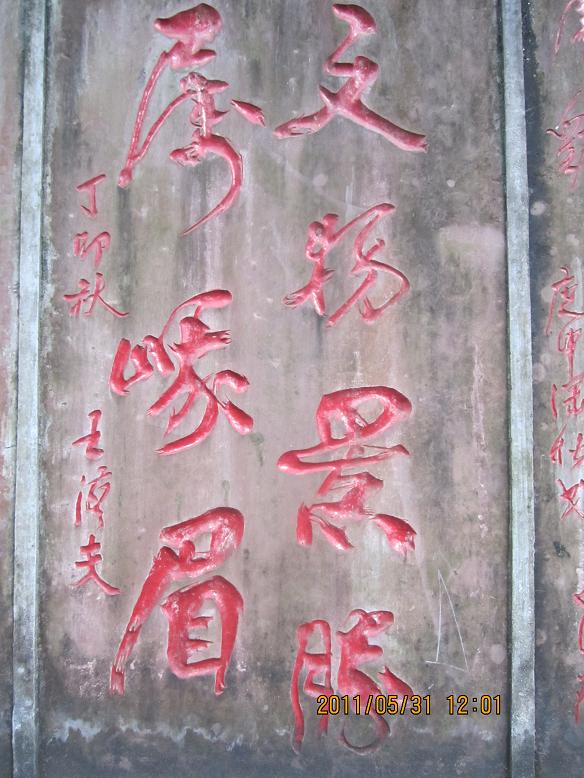 文物景勝
属峨眉
丁卯秋
王济夫
庚申
2011/05/31 12:01